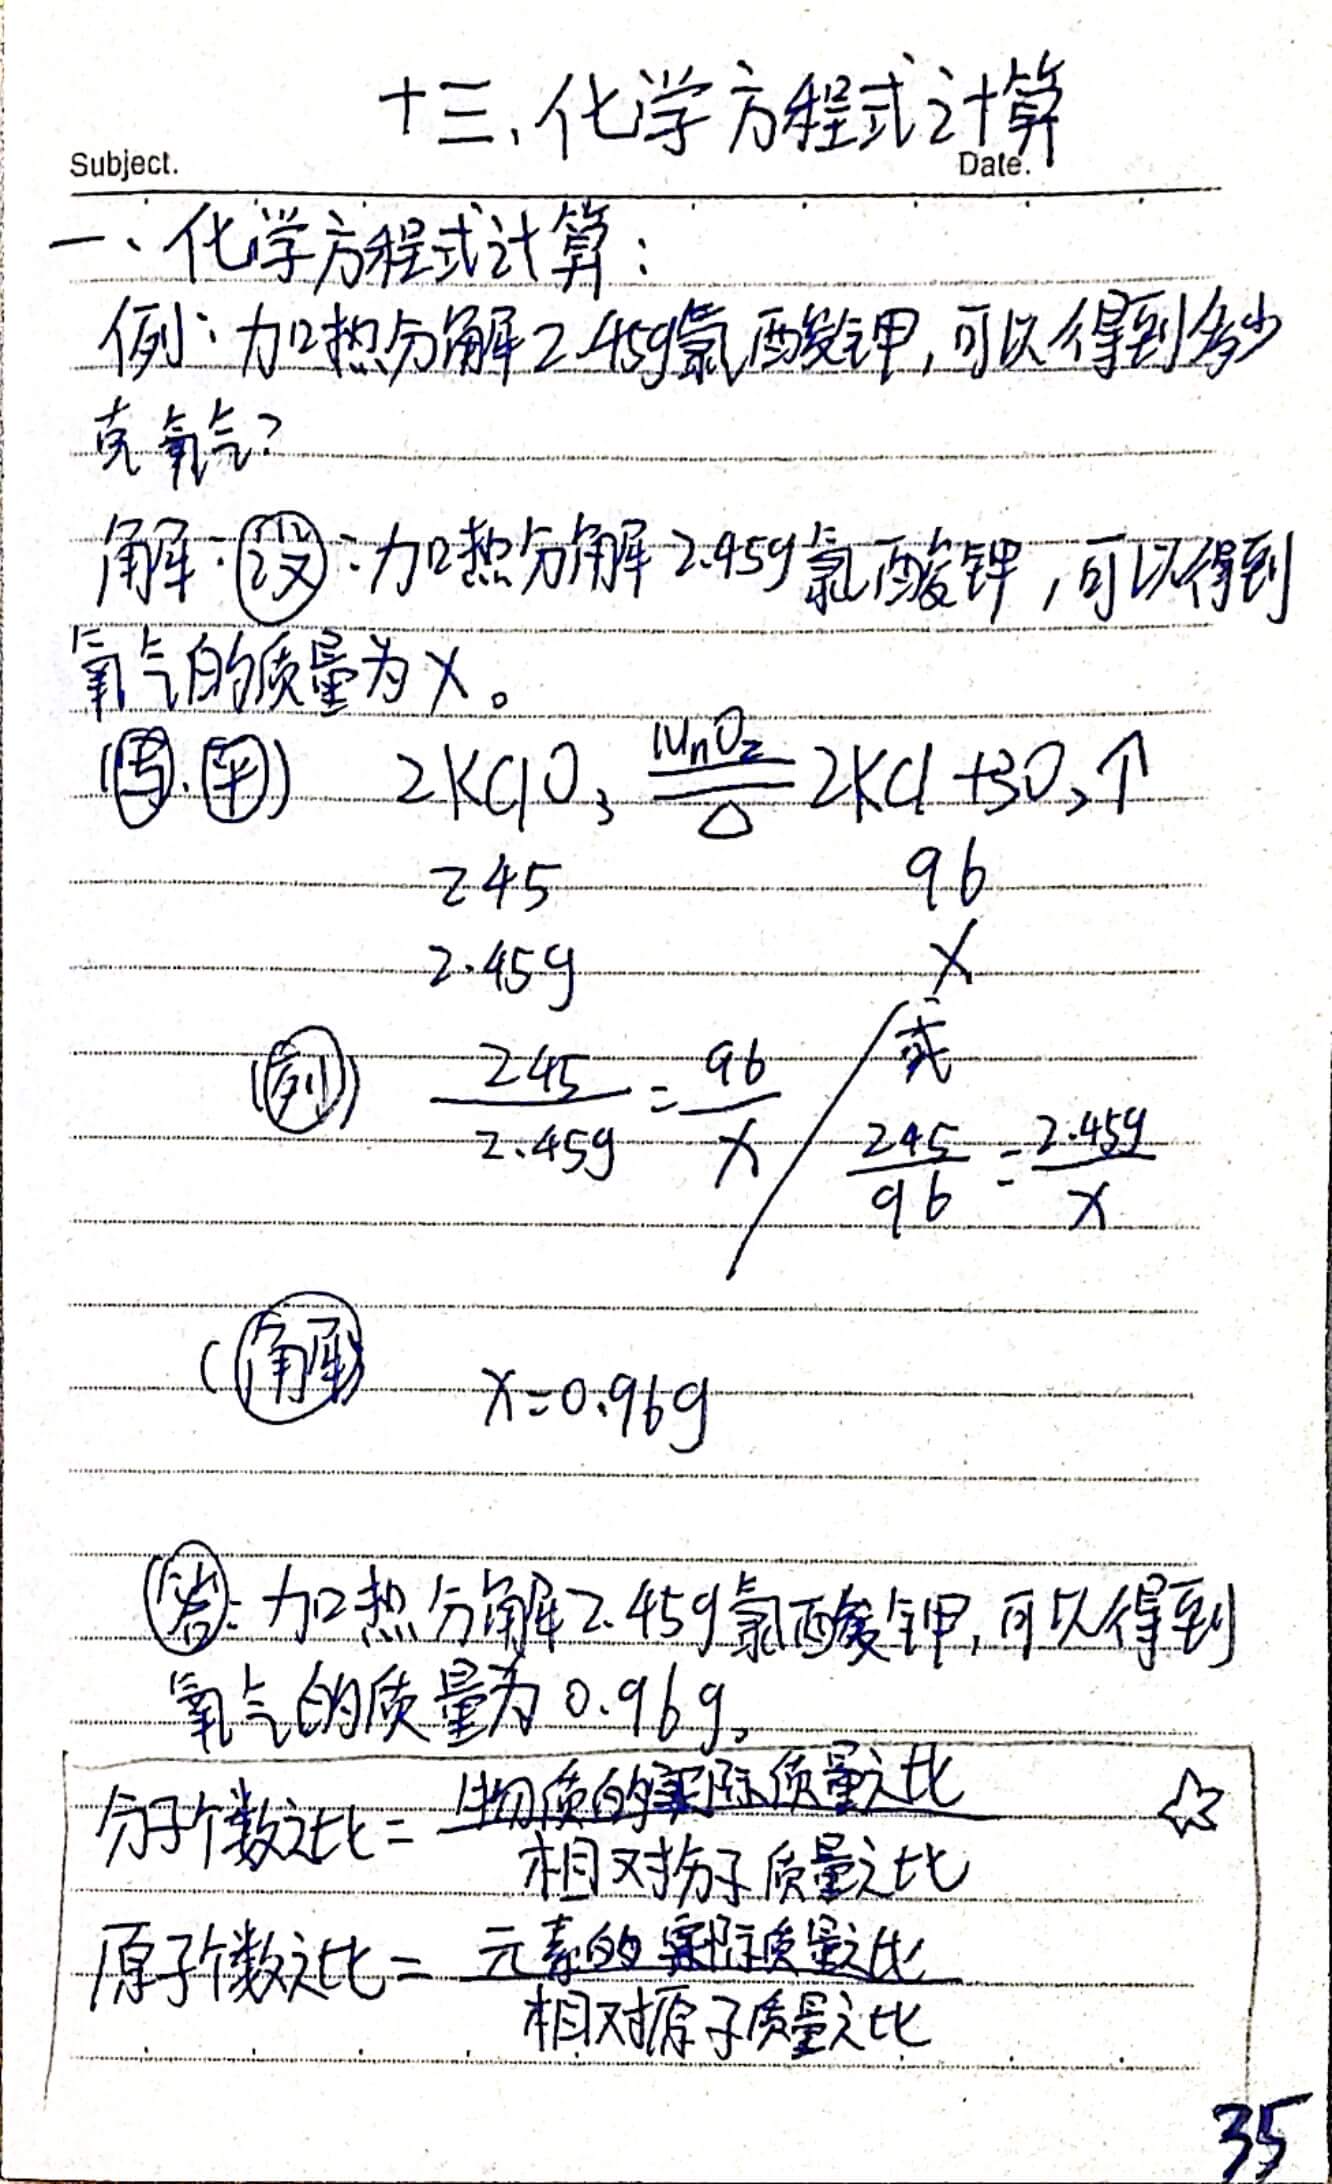 十三、化学方程式计算
Subject.
Date.
一、化学方程式计算：
例：加热分解2.45g氯酸钾，可以得到多少
克氧气？
解：设：加热分解2.45g氯酸钾，可以得到
氧气的质量为x。
(写.平) 2KClO₃ MnO₂ ══ △ 2KCl+3O₂↑
245 96
2.45g x
(列) 245/2.45g = 96/x 或 245/96 = 2.45g/x
(解) x=0.96g
(答：加热分解2.45g氯酸钾，可以得到
氧气的质量为0.96g。
分子个数之比= 物质的实际质量之比 ☆
相对分子质量之比
原子个数之比= 元素的实际质量之比
相对原子质量之比
35